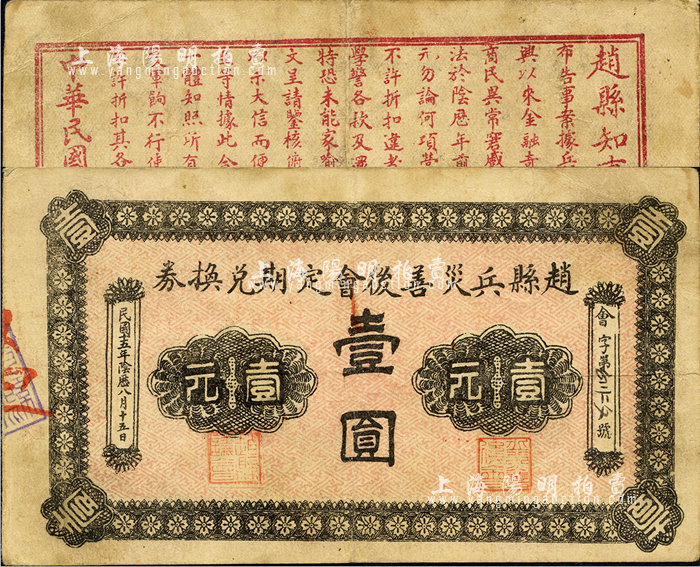 趙縣知
布告事案據兵
興以來金融奇
商民異常窘
法於陰歷年前
元勿論何項營
不許折扣違者
學警各款及
特恐未能家喻
文呈請鑒核俯
大信而便
等情據此合
體知照所有
軍餉不行使
許折扣其各
中華民國
趙縣兵災善後會定期兌換券
會字第
號
壹元
壹圓
壹元
民國十五年陰歷八月十五日
壹
壹
壹
壹
上海陽明拍賣
www.yangmingauction.com
上海陽明拍賣
www.yangmingauction.com
上海陽明拍賣
www.yangmingauction.com